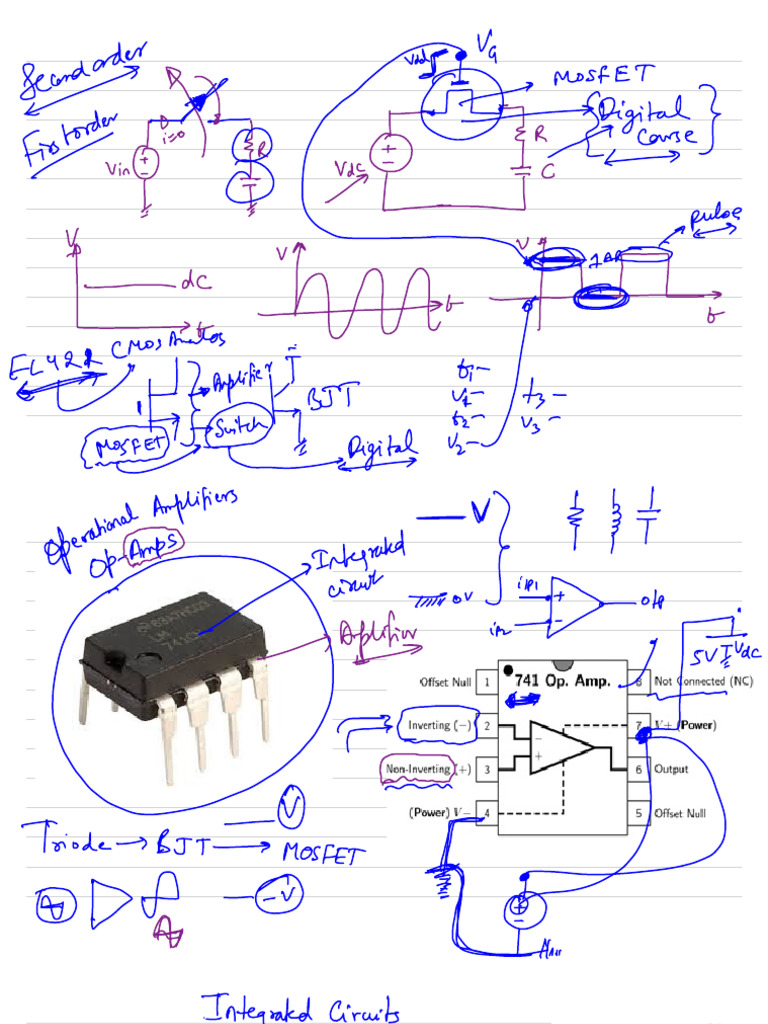 Second order
First order
i=0
Vin
R
Vdd
VG
MOSFET
Digital
Course
R
C
Vdc
pulse
V
dC
t
V
t
V
t
EL422
CMOS Analog
Amplifier
BJT
MOSFET
Switch
Digital
t1-
V1-
t2-
V2-
t3-
V3-
Operational Amplifiers
Op-Amps
Integrated
circuit
LM
Aplifier
V
0V
i/p1
i/p2
+
-
o/p
5V
Vdc
741 Op. Amp.
Offset Null 1
8 Not Connected (NC)
Inverting (-) 2
7 V+ (Power)
Non-Inverting (+) 3
6 Output
(Power) V- 4
5 Offset Null
Triode → BJT → MOSFET
V
-V
Integrated Circuits